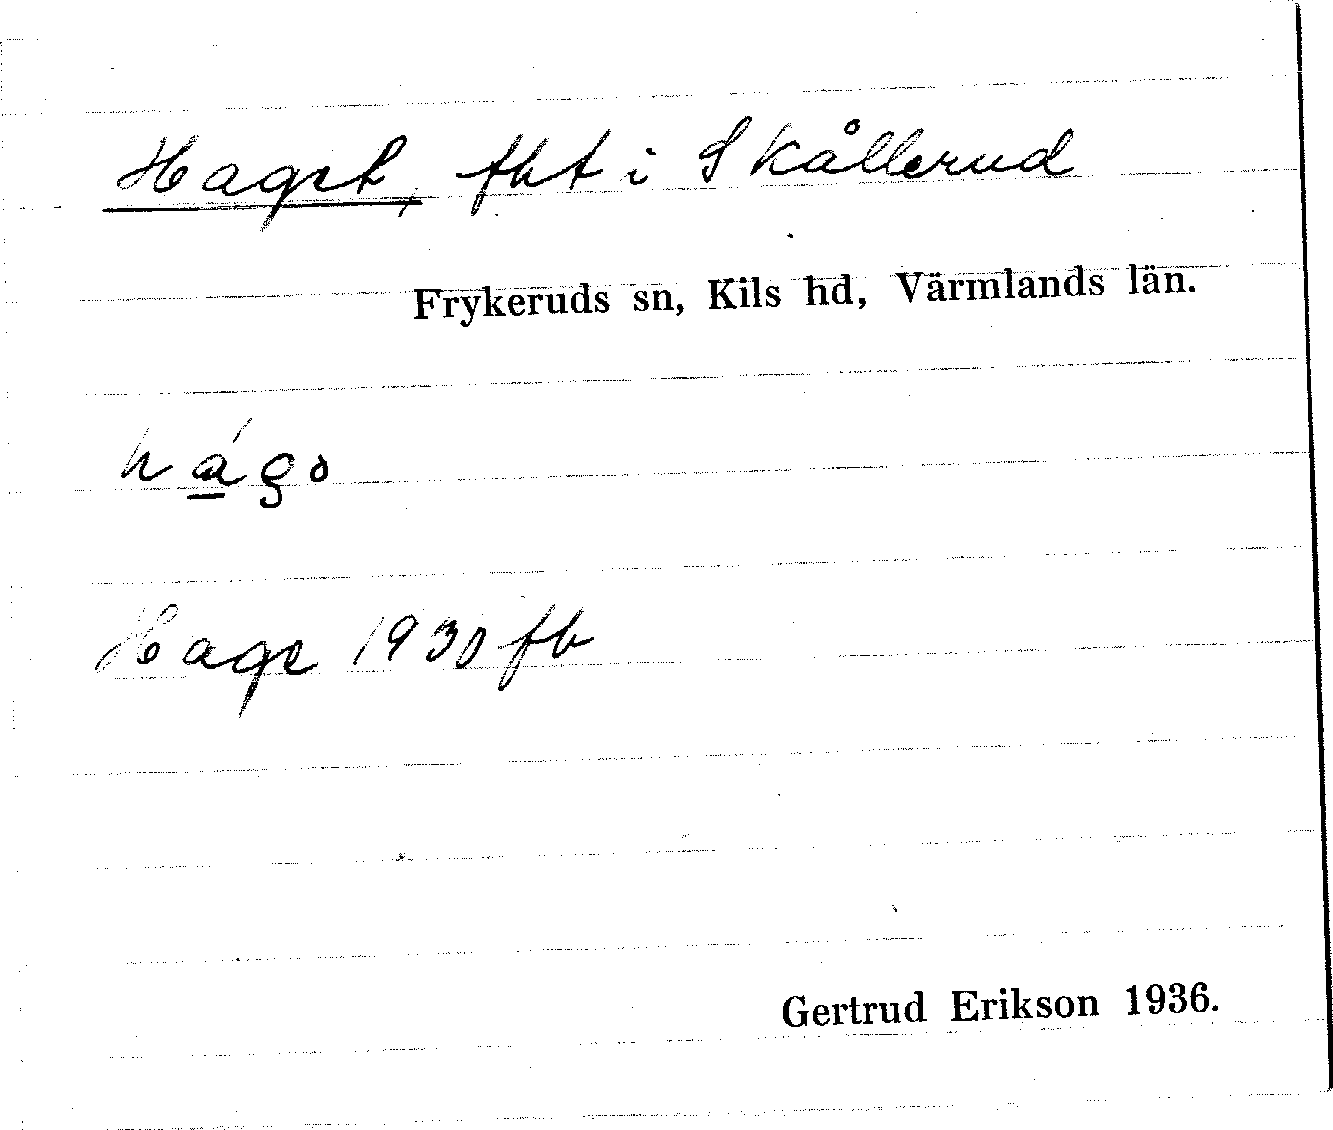 Haget, tht i Skållerud
Frykeruds sn, Kils hd, Värmlands län.
hágo
Hage 1930 fb
Gertrud Erikson 1936.